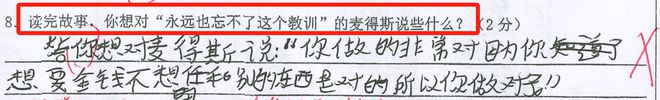 8. 读完故事，你想对“永远也忘不了这个教训”的麦得斯说些什么？（2分）
你想对麦得斯说：“你做的非常对因为你
想要金钱不想任何别的东西是对的所以你做对了”